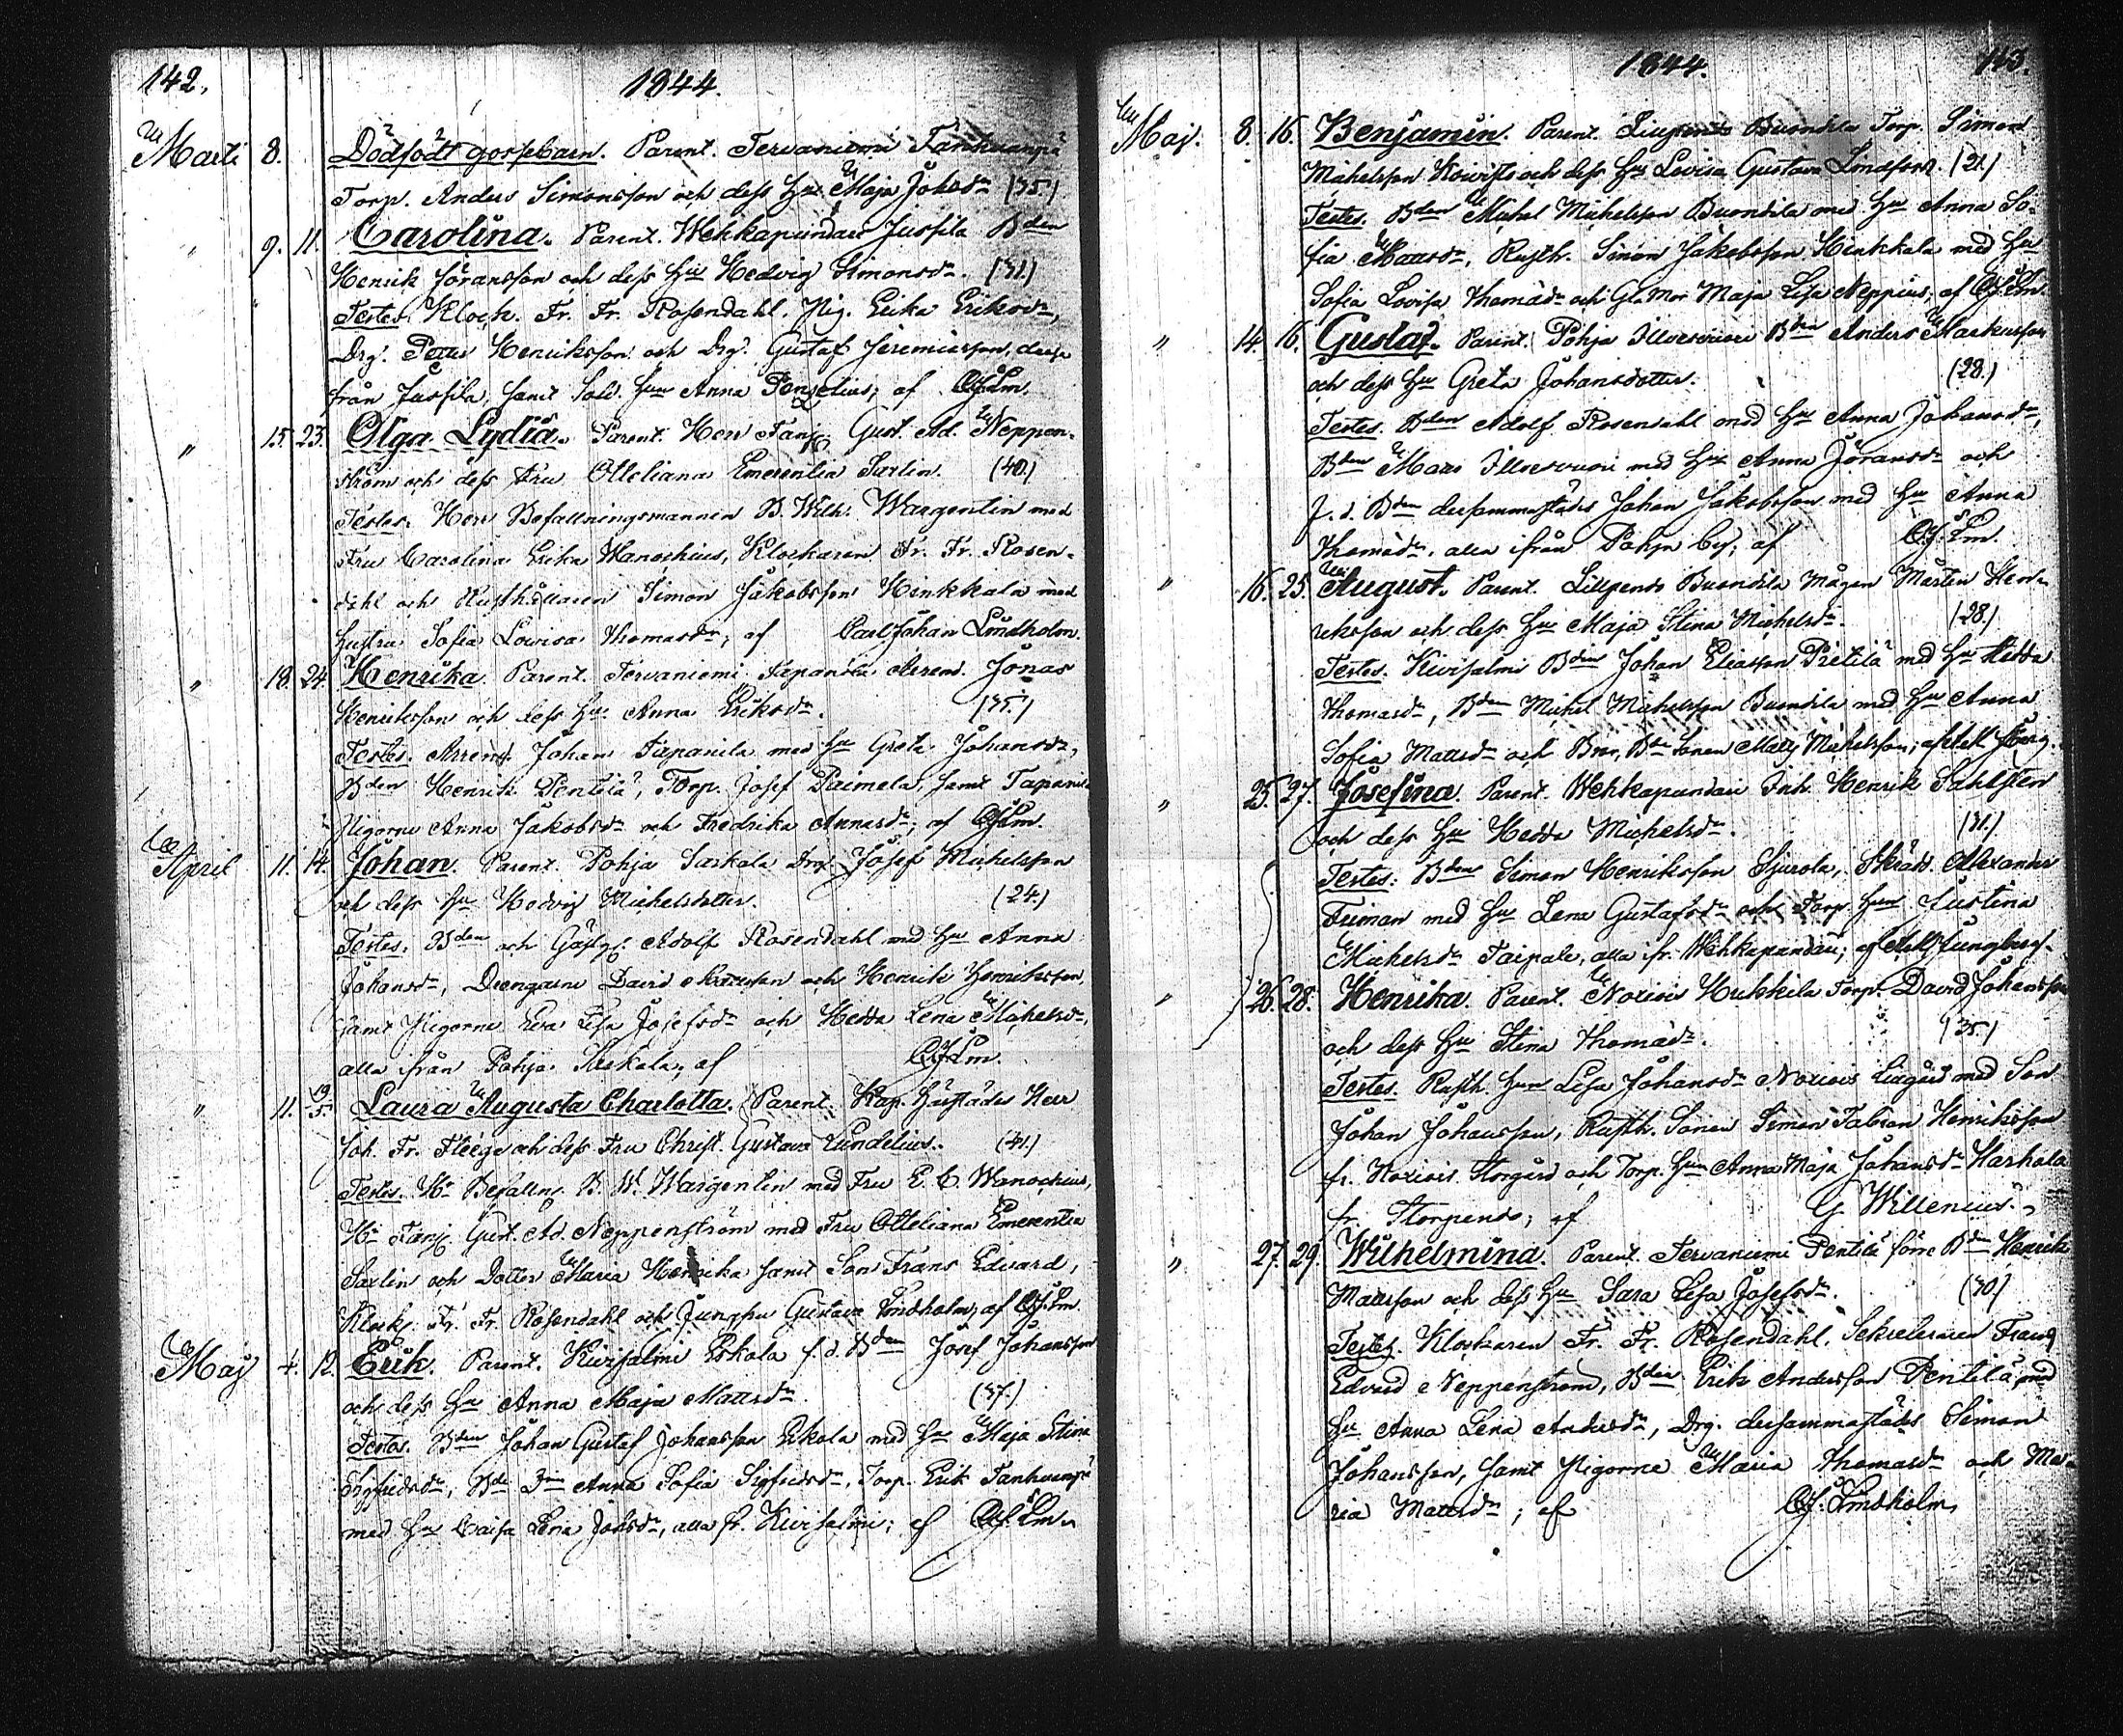 142.
1844.
Martii 8. Dödfödt gossebarn. Parent. Tervaniemi Tanhuanpä
Torp. Anders Simonsson och dess Hu Maja Johsdr (35)
" 9. 11. Carolina. Parent. Wehkapundari Jussila Bden
Henrik Göransson och dess Hu Hedvig Simonsdr. (31.)
Testes. Klock. Fr. Fr. Rosendahl, Pig. Erika Eriksdr,
Drg. Petter Henriksson och Drg. Gustaf Jeremiasson, dessa
från Jussila, samt Sold. hun Anna Ponzelius; af CJLm.
" 15. 23. Olga Lydia. Parent. Herr Fanj. Gust. Ad. Neppen-
ström och dess Fru Otteliana Emerentia Sarlin. (40.)
Testes. Herr Befallningsmannen B. Wilh. Wargentin med
Fru Carolina Erika Wanochius, Klockaren Fr. Fr. Rosen-
dahl och Rusthållaren Simon Jakobsson Heikkala med
hustru Sofia Lovisa Thomasdr; af Carl Johan Lindholm.
" 18. 24. Henrika. Parent. Tervaniemi Tapanila Arrend. Jonas
Henriksson och dess Hu Anna Eriksdr. (35.)
Testes. Arrend. Johan Tapanila med Hu Greta Johansdr,
Bden Henrik Pentilä, Torp. Josef Paimela, samt Tapanila
Pigorna Anna Jakobsdr och Fredrika Annasdr; af CJLm.
April 11. 14. Johan. Parent. Pohja Seskala Drg. Josef Michelsson
och dess Hu Hedvig Michelsdotter. (24.)
Testes. Bden och Gästg. Adolf Rosendahl med Hu Anna
Johansdr, Drengarne David och Henrik Henriksson,
samt Pigorna Eva Lisa Josefsdr och Hedda Lena Michelsdr,
alla ifrån Pohja Seskala; af CJLm.
" 11. 19/5. Laura Augusta Charlotta. Parent. Kap. Husstades Herr
Joh. Fr. Fleege och dess Fru Christ. Gustava Lundelius. (41.)
Testes. Hr Befallng. B. W. Wargentin med Fru E. C. Wanochius,
Hr Fanj. Gust. Ad. Neppenström med Fru Otteliana Emerentia
Sarlin och Dotter Maria Henrika samt Son Frans Edvard,
Klock. Fr. Fr. Rosendahl och Jungfru Gustava Lindholm; af CJLm.
Maj 4. 12. Erik. Parent. Kivisalmi Eskola f. d. Bden Josef Johansson
och dess Hu Anna Maja Mattsdr. (37.)
Testes. Bden Johan Gustaf Johansson Eskola med Hu Maja Stina
Sigfridsdr, Bde Dr Anna Sofia Sigfridsdr, Torp. Erik Tanhuanpä
med Hu Caisa Lena Johsdr, alla fr. Kivisalmi; af CJLm.
1844. 143.
Maj. 8. 16. Benjamin. Parent. Lillpendo Buondila Torp. Simon
Michelsson Koivisto och dess Hu Lovisa Gustava Lindfors. (21.)
Testes. Bden Michel Michelsson Buondila med Hu Anna So-
fia Mattsdr, Rusth. Simon Jakobsson Heikkala med Hu
Sofia Lovisa Thomasdr och Gla Mor Maja Lisa Neppius; af CJLm.
" 14. 16. Gustaf. Parent. Pohja Illoisvuori Bden Anders Markusson
och dess Hu Greta Johansdotter. (28.)
Testes. Bden Adolf Rosendahl med Hu Anna Johansdr,
Bden Matts Illoisvuori med Hu Anna Göransdr och
f. d. Bden dersammastädes Johan Jakobsson med Hu Anna
Thomasdr, alla ifrån Pohja by; af CJLm.
" 16. 25. August. Parent. Lillpendo Buondila Mågen Mårten Hen-
riksson och dess Hu Maja Stina Michelsdr. (28.)
Testes. Kivisalmi Bden Johan Eliasson Pietilä med Hu Hedda
Thomasdr, Bden Michel Michelsson Buondila med Hu Anna
Sofia Mattsdr och Bror, Bde Sonen Matts Michelsson;
" 25. 27. Josefina. Parent. Wehkapundari Inh. Henrik Sahlsten
och dess Hu Hedda Michelsdr. (31.)
Testes: Bden Simon Henriksson Sjurola, Skrädd. Alexander
Friman med Hu Lena Gustafsdr och Torp. hun Justina
Michelsdr Taipale, alla ifr. Wehkapundari; af Ljungberg.
" 26. 28. Henrika. Parent. Noxiois Heikkila Torp. David Johansson
och dess Hu Stina Thomasdr. (35.)
Testes. Rusth. hun Lisa Johansdr Noxiois Lillgård med Son
Johan Johansson, Rusth. Sonen Simon Fabian Henriksson
fr. Noxiois Storgård och Torp. hun Anna Maja Johansdr Harhala
fr. Storpendo; af G. Willenius.
" 27. 29. Wilhelmina. Parent. Tervaniemi Pentilä förre Bden Henrik
Mattsson och dess Hu Sara Lisa Josefsdr. (30.)
Testes. Klockaren Fr. Fr. Rosendahl, Sekreteraren Frans
Edvard Neppenström, Bden Erik Andersson Pentilä med
Hu Anna Lena Andersdr, Drg. dersammastädes Simon
Johansson, samt Pigorna Maria Thomasdr och Ma-
ria Mattsdr; af CJ. Lindholm